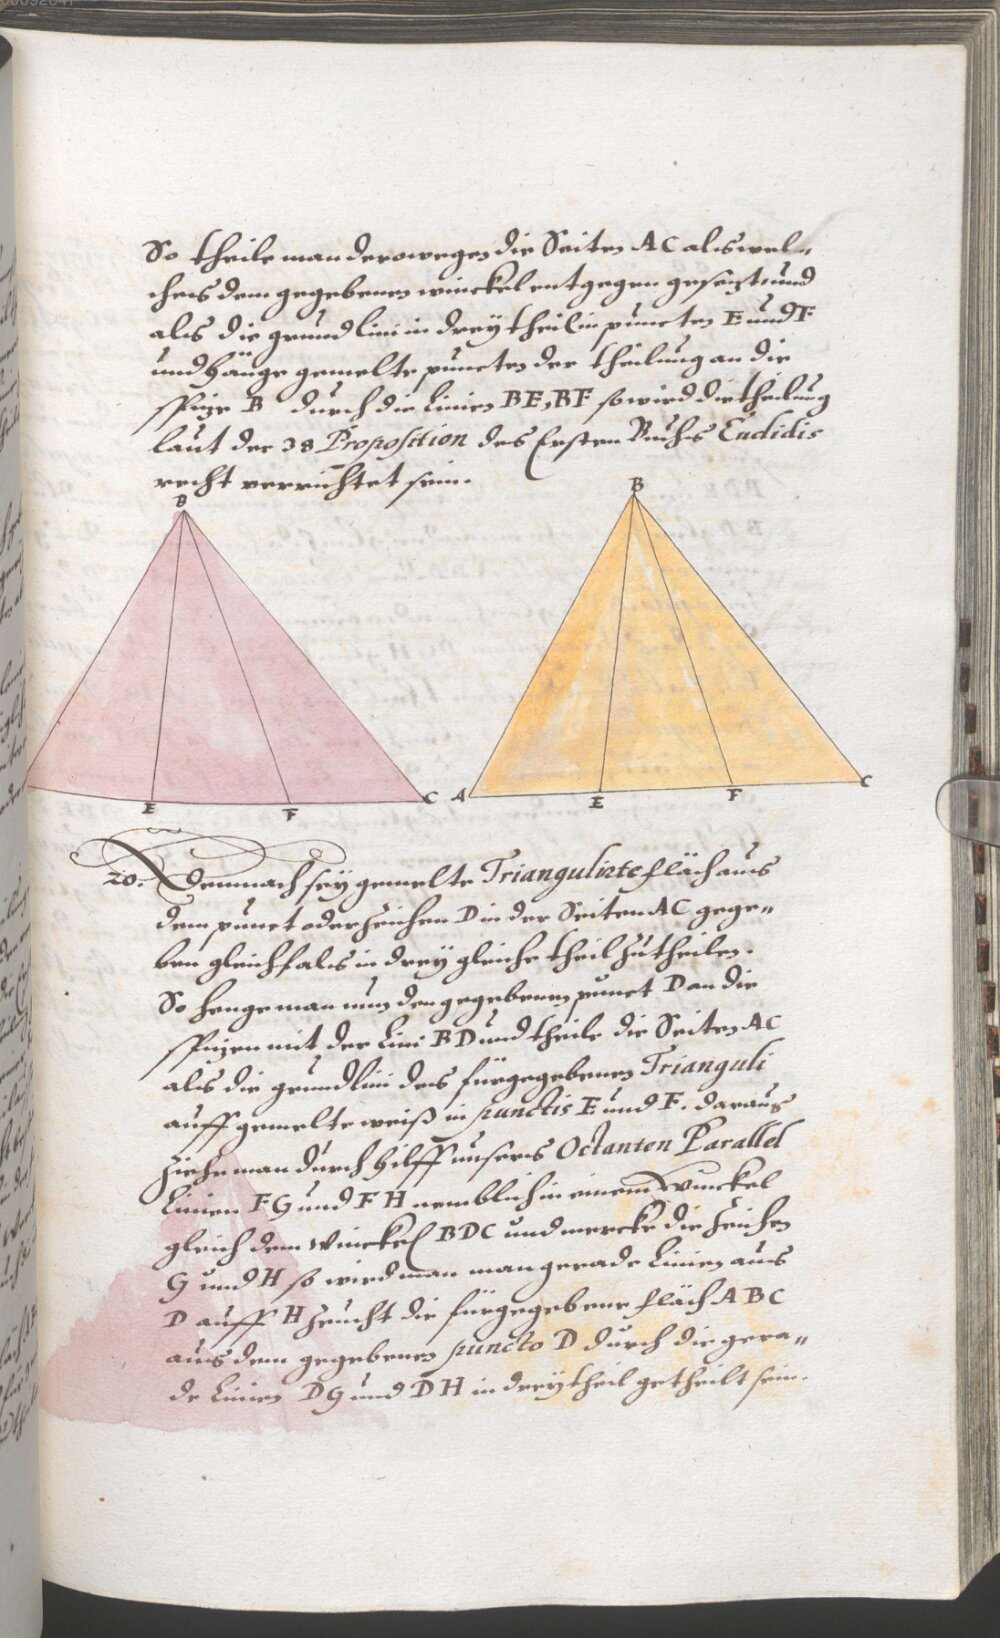 So theile man derowegen die Seiten AC als wel„
ches dem gegebenen winckel entgegen gesetzt und
als die grundlini in drey theil in puncten E und F
und hänge gemelte puncten der theilung an die
spitze B durch die Linien BE, BF so wird die theilung
laut der 38 Proposition des Ersten Buchs Euclidis
recht verrichtet sein.
B
B
E
F
C
A
E
F
C
20. Demnach sey gemelte Triangulirte fläch aus
dem punct oder Zeichen D in der Seiten AC gege„
ben gleichfals in drey gleiche theil zutheilen.
So henge man nun den gegebenen punct D an die
spitzen mit der Lini BD und theile die Seiten AC
als die grundlini des fürgegebenen Trianguli
auff gemelte weiß in punctis E und F. daraus
ziehe man durch hilff unsers Octanten Parallel
Linien FG und FH nemblich in einem Winckel
gleich dem Winckel BDC und mercke die Zeichen
G und H so wird man man gerade Linien aus
D auff H zeucht die fürgegebene fläch ABC
aus dem gegebenen puncto D durch die gera„
de Linien DG und DH in drey theil getheilt sein.